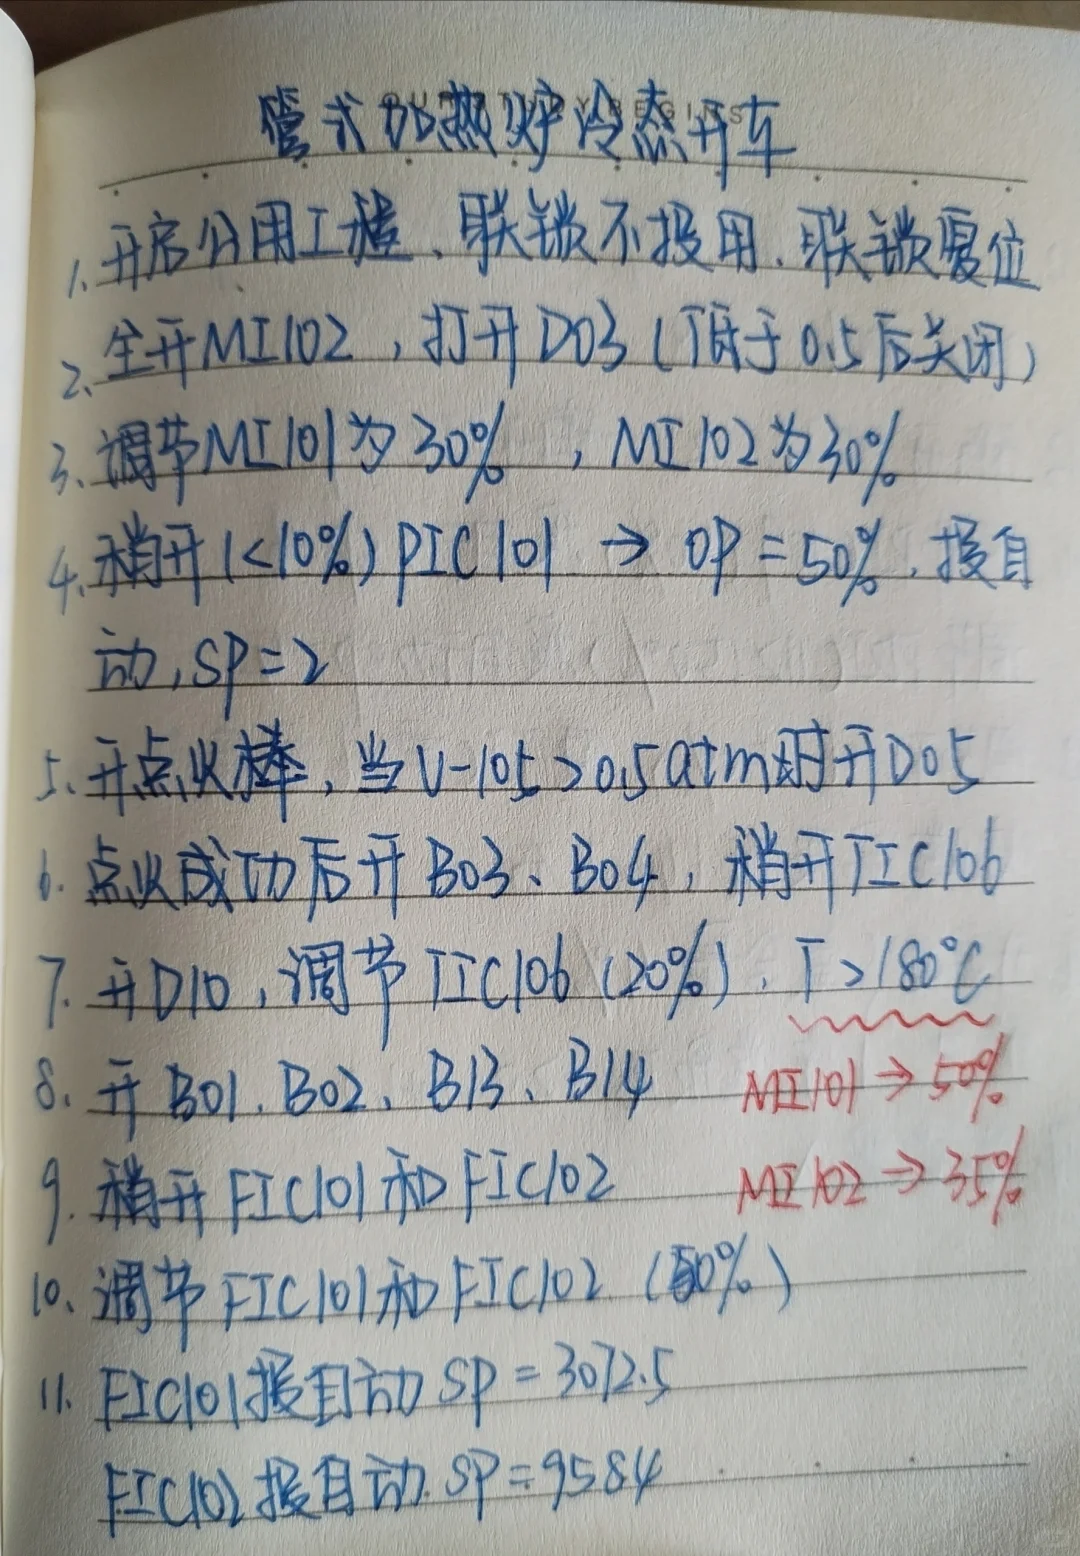 管式加热炉冷态开车
1、开启公用工程、联锁不投用、联锁复位
2、全开MI102，打开D03（低于0.5后关闭）
3、调节MI101为30%，MI102为30%
4、稍开(<10%)PIC101 → OP=50%、投自
动，SP=2
5、开点火棒，当V-105>0.5atm时开D05
6. 点火成功后开B03、B04，稍开TIC106
7. 开D10，调节TIC106（20%）、T>180℃
8. 开B01、B02、B13、B14 MI101→50%
9. 稍开FIC101和FIC102 MI102→35%
10、调节FIC101和FIC102（50%）
11. FIC101投自动SP=3072.5
FIC102投自动.SP=9584